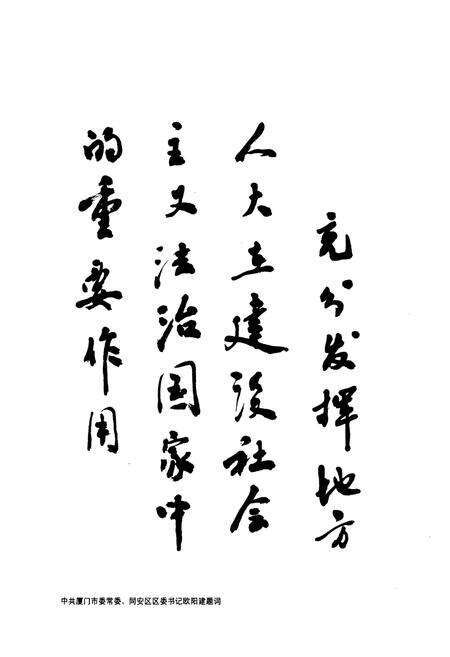 充分发挥地方
人大在建设社会
主义法治国家中
的重要作用
中共厦门市委常委、同安区区委书记欧阳建题词